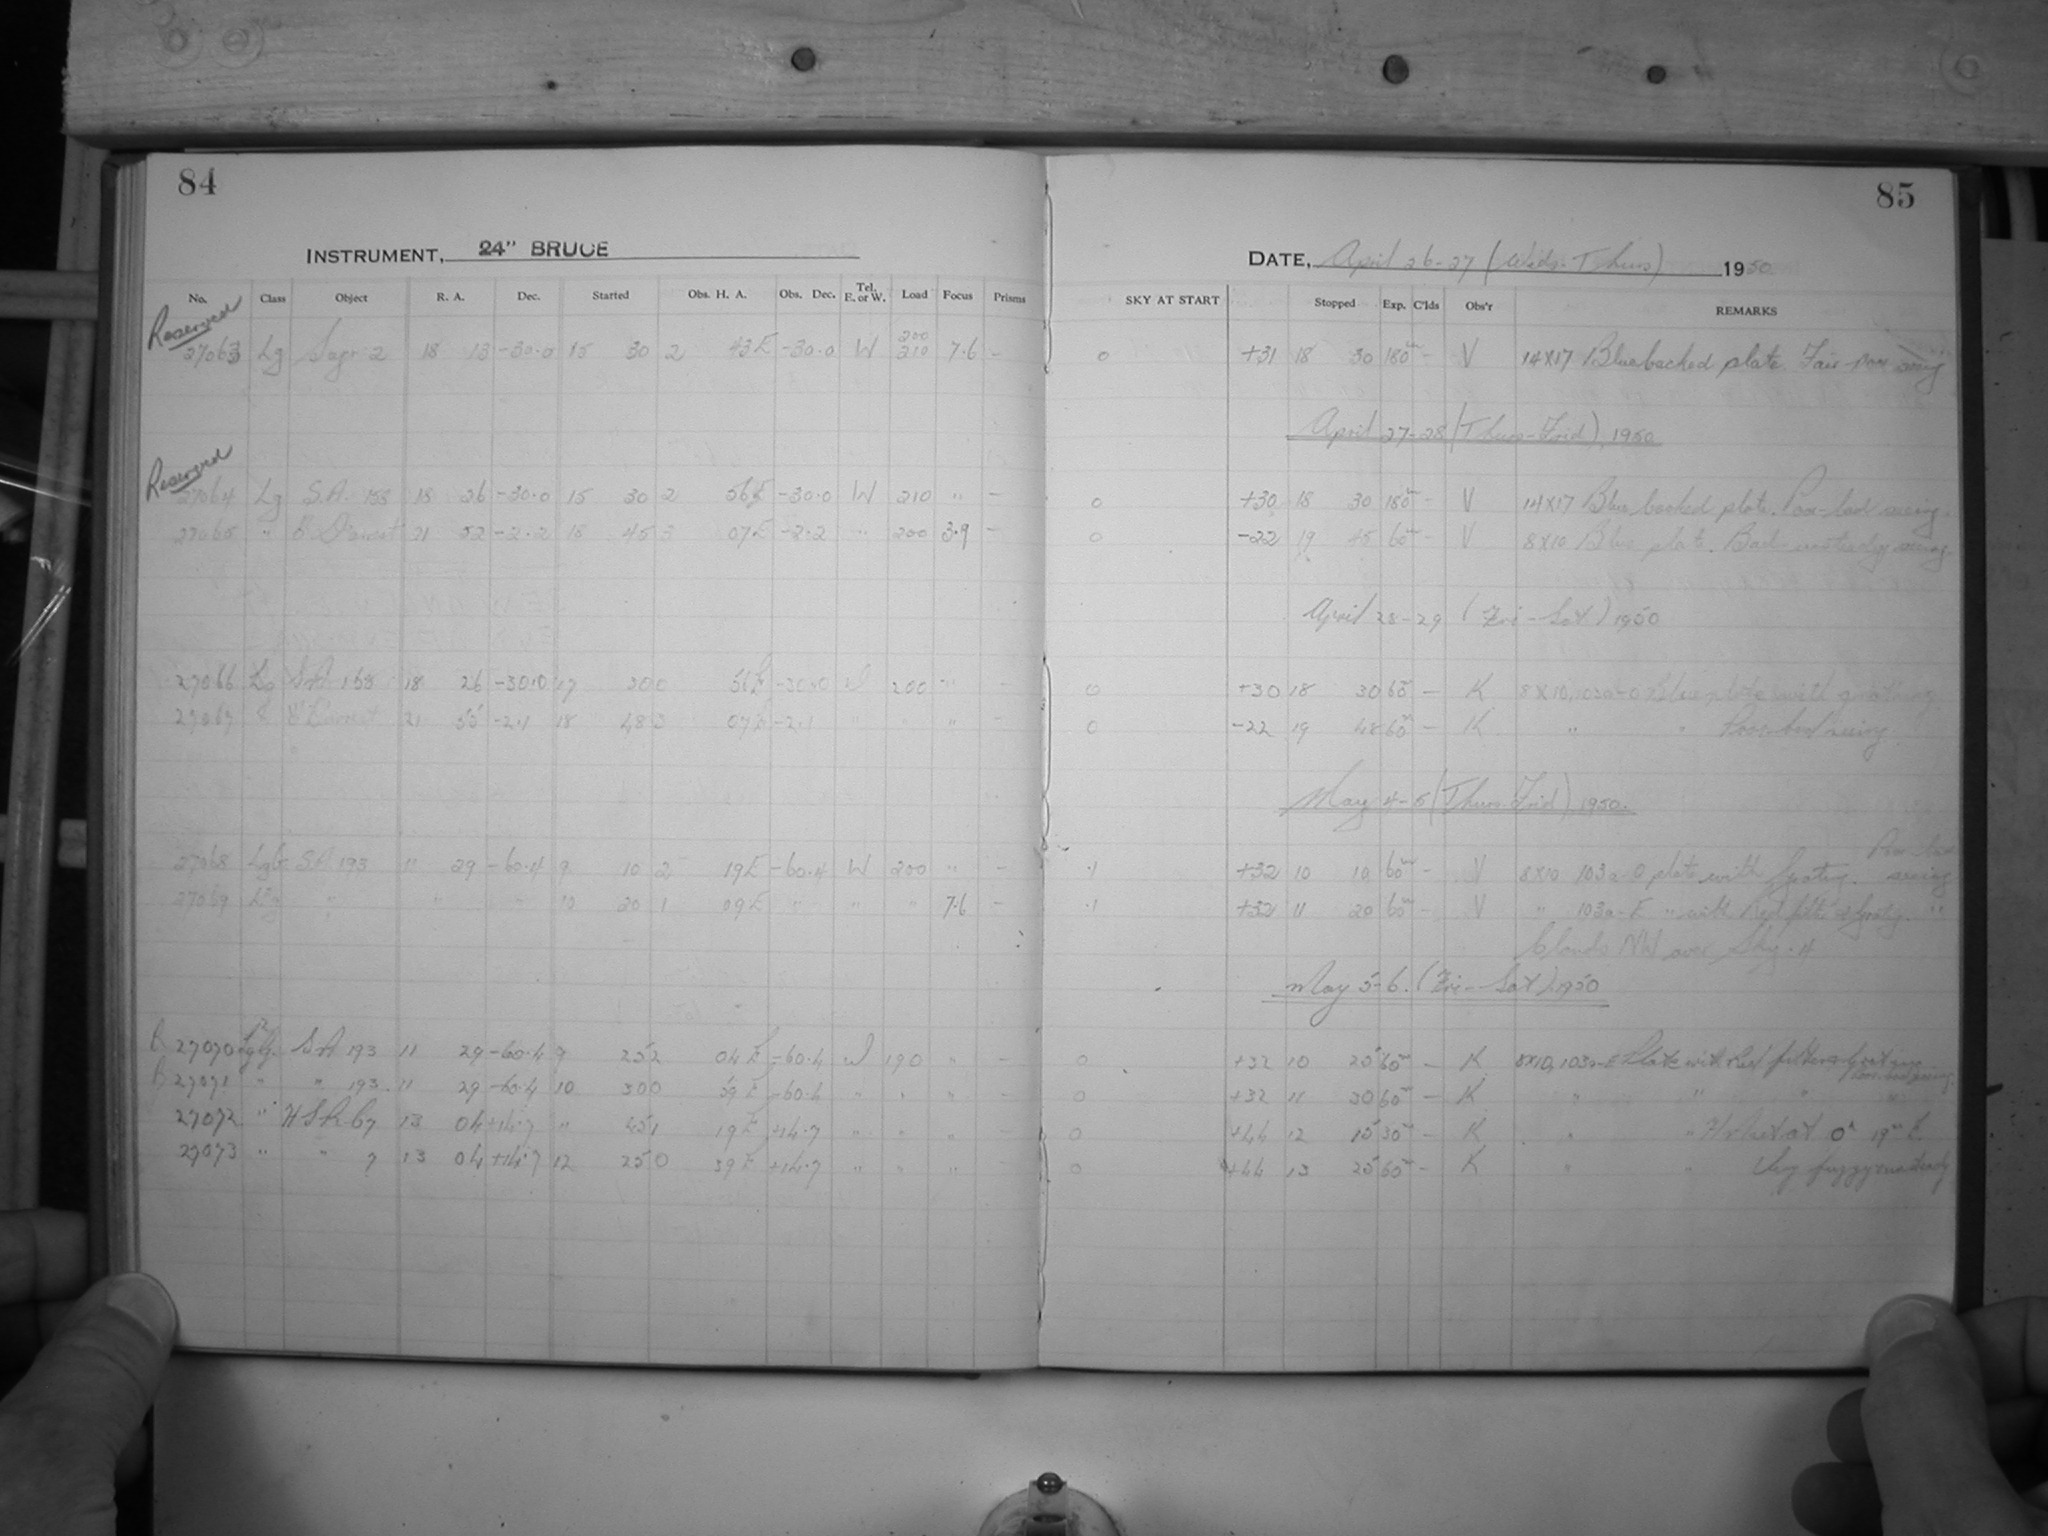 84
INSTRUMENT, 24" BRUCE
No. Class Object R. A. Dec. Started Obs. H. A. Obs. Dec. Tel. E. or W. Load Focus Prisms
Reserved
200
27063 Lg Sagr 2 18 13 -30.0 15 30 2 43E -30.0 W 210 7.6 -
Reserved
27064 Lg S.A. 158 18 26 -30.0 15 30 2 56E -30.0 W 210 " -
27065 " 21 52 -2.2 18 45 3 07E -2.2 " 200 3.9 -
27066 SA 158 18 26 -30.0 17 30 0 56E -30.0 W 200 " -
27067 21 55 -2.1 18 48 3 07E -2.1 " " " -
27068 SA 193 11 29 -60.4 9 10 2 19E -60.4 W 200 " -
27069 " " " 10 20 1 09E " " " 7.6 -
27070 SA 193 11 29 -60.4 9 25 2 04E -60.4 W 190 " -
27071 " " 193 11 29 -60.4 10 30 0 59E -60.4 " " " -
27072 " 13 04 +14.7 " 45 1 19E +14.7 " " " -
27073 " " 7 13 04 +14.7 12 25 0 39E +14.7 " " " -
85
DATE, April 26-27 (Weds-Thurs) 1950
SKY AT START Stopped Exp. C'lds Obs'r REMARKS
0 +31 18 30 180m - V 14x17 Blue backed plate. Fair-poor seeing
April 27-28 (Thurs-Frid), 1950
0 +30 18 30 180m - V 14x17 Blue backed plate. Poor-bad seeing.
0 -22 19 45 60m - V 8x10 Blue plate. Bad unsteady seeing.
April 28-29 (Fri-Sat) 1950
0 +30 18 30 60m - K 8x10, 103a-O Blue plate with grating
0 -22 19 48 60m - K " " Poor-bad seeing
May 4-5 (Thurs-Frid), 1950.
.1 +32 10 10 60m - V 8x10 103a-O plate with Grating. Poor-bad seeing
.1 +32 11 20 60m - V " 103a-E " with Red filter & grating. "
Clouds NW over Sky .4
May 5-6. (Fri-Sat) 1950
0 +32 10 25 60m - K 8x10, 103a-E Plate with Red filter & grating
Poor-bad seeing.
0 +32 11 30 60m - K " " " "
0 +44 12 15 30m - K " " at 0h 19m E
0 +44 13 25 60m - K " " Very fuzzy unsteady